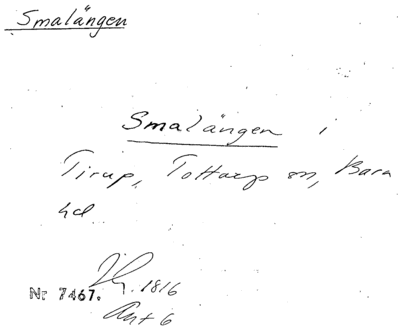 Smalängen
Smalängen i
Tirup, Tottarp sn, Bara
hd
1816
Nr 7467.
Akt 6